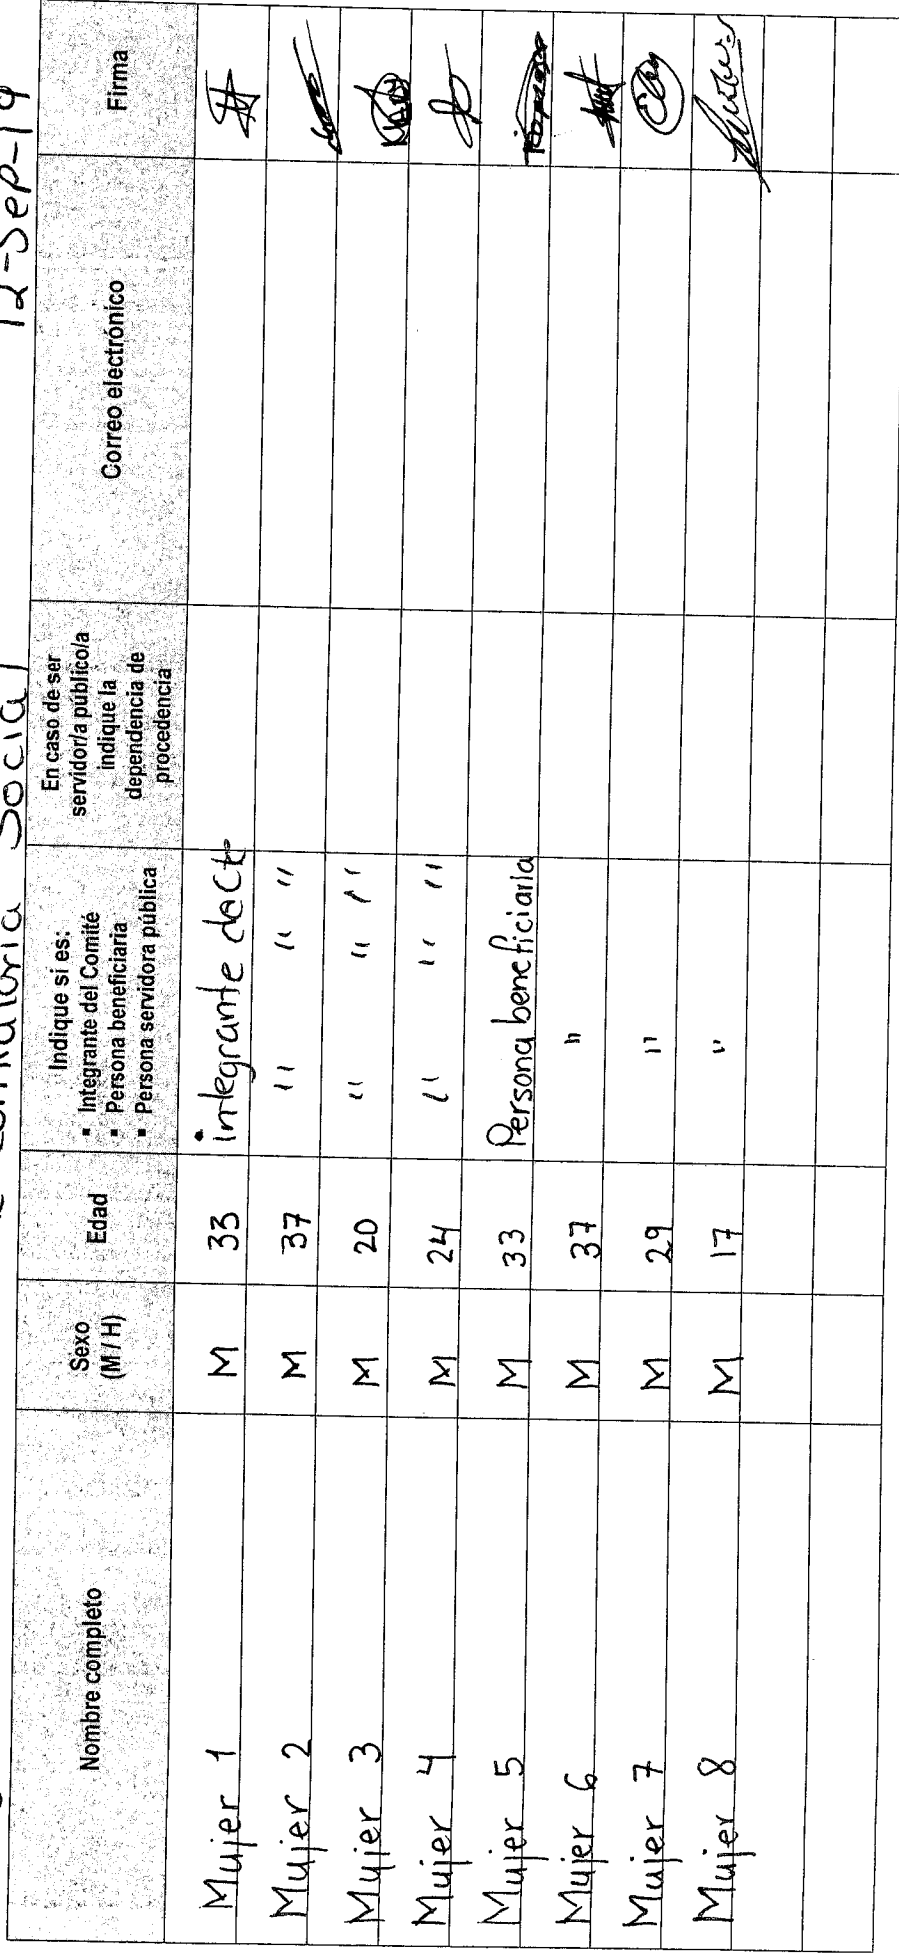 Contraloría Social 12-Sep-19
Nombre completo Sexo (M / H) Edad Indique si es: ▪ Integrante del Comité ▪ Persona beneficiaria ▪ Persona servidora pública En caso de ser servidor/a público/a indique la dependencia de procedencia Correo electrónico Firma
Mujer 1 M 33 Integrante de Ct
Mujer 2 M 37 " " "
Mujer 3 M 20 " " "
Mujer 4 M 24 " " "
Mujer 5 M 33 Persona beneficiaria
Mujer 6 M 37 "
Mujer 7 M 29 "
Mujer 8 M 17 "